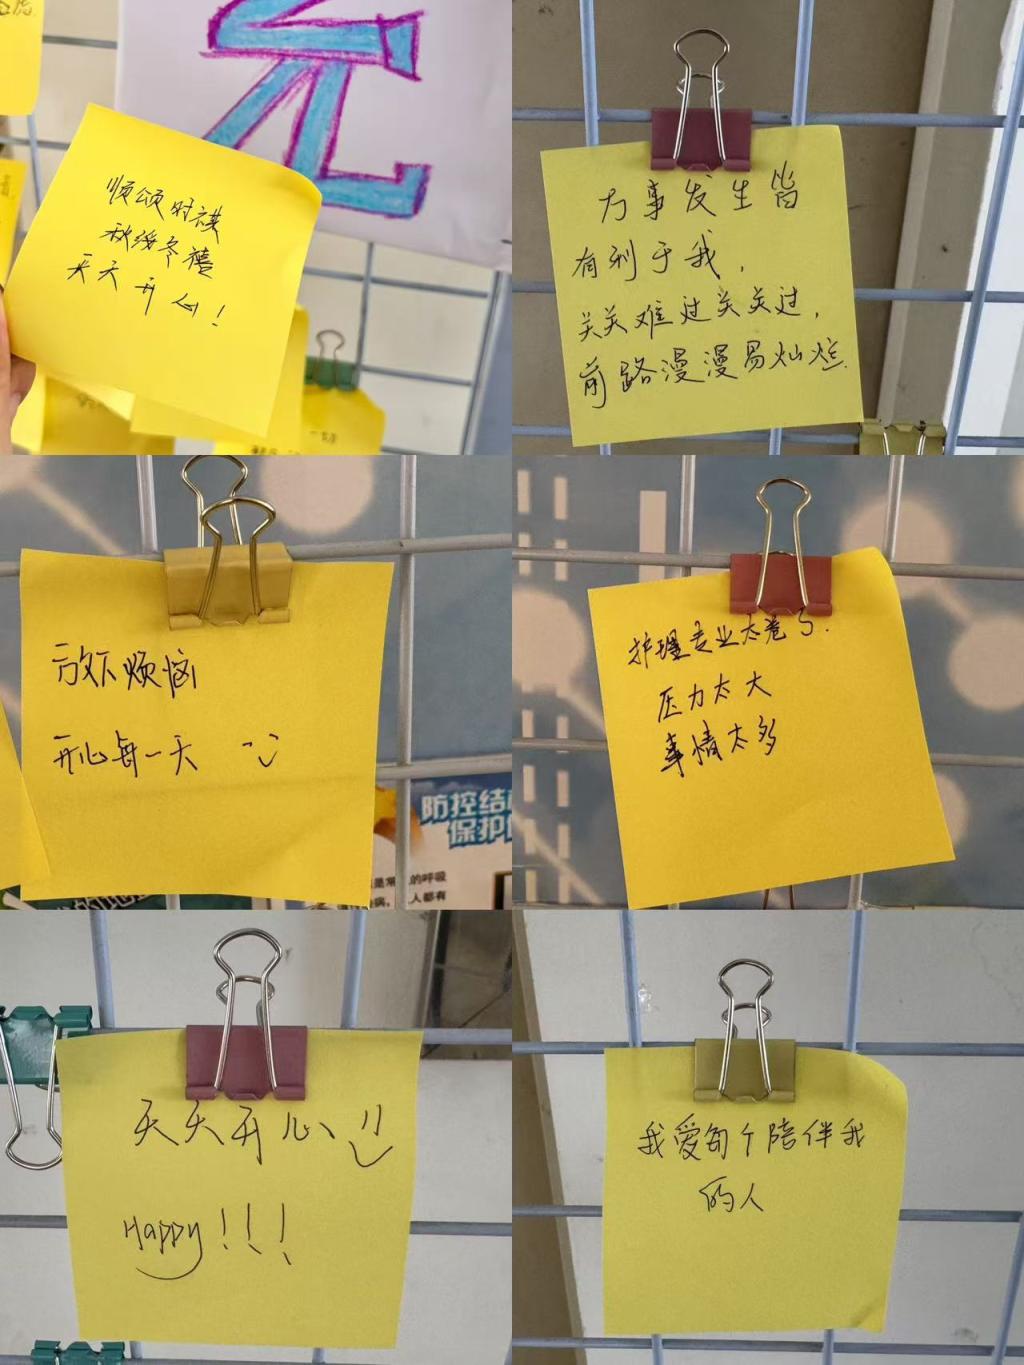 顺颂时祺
秋绥冬禧
天天开心！
万事发生皆
有利于我，
关关难过关关过，
前路漫漫易灿烂
放下烦恼
开心每一天
防控结
保护
的呼吸
人都有
护理专业太卷了.
压力太大
事情太多
天天开心、
Happy！！！
我爱每个陪伴我
的人